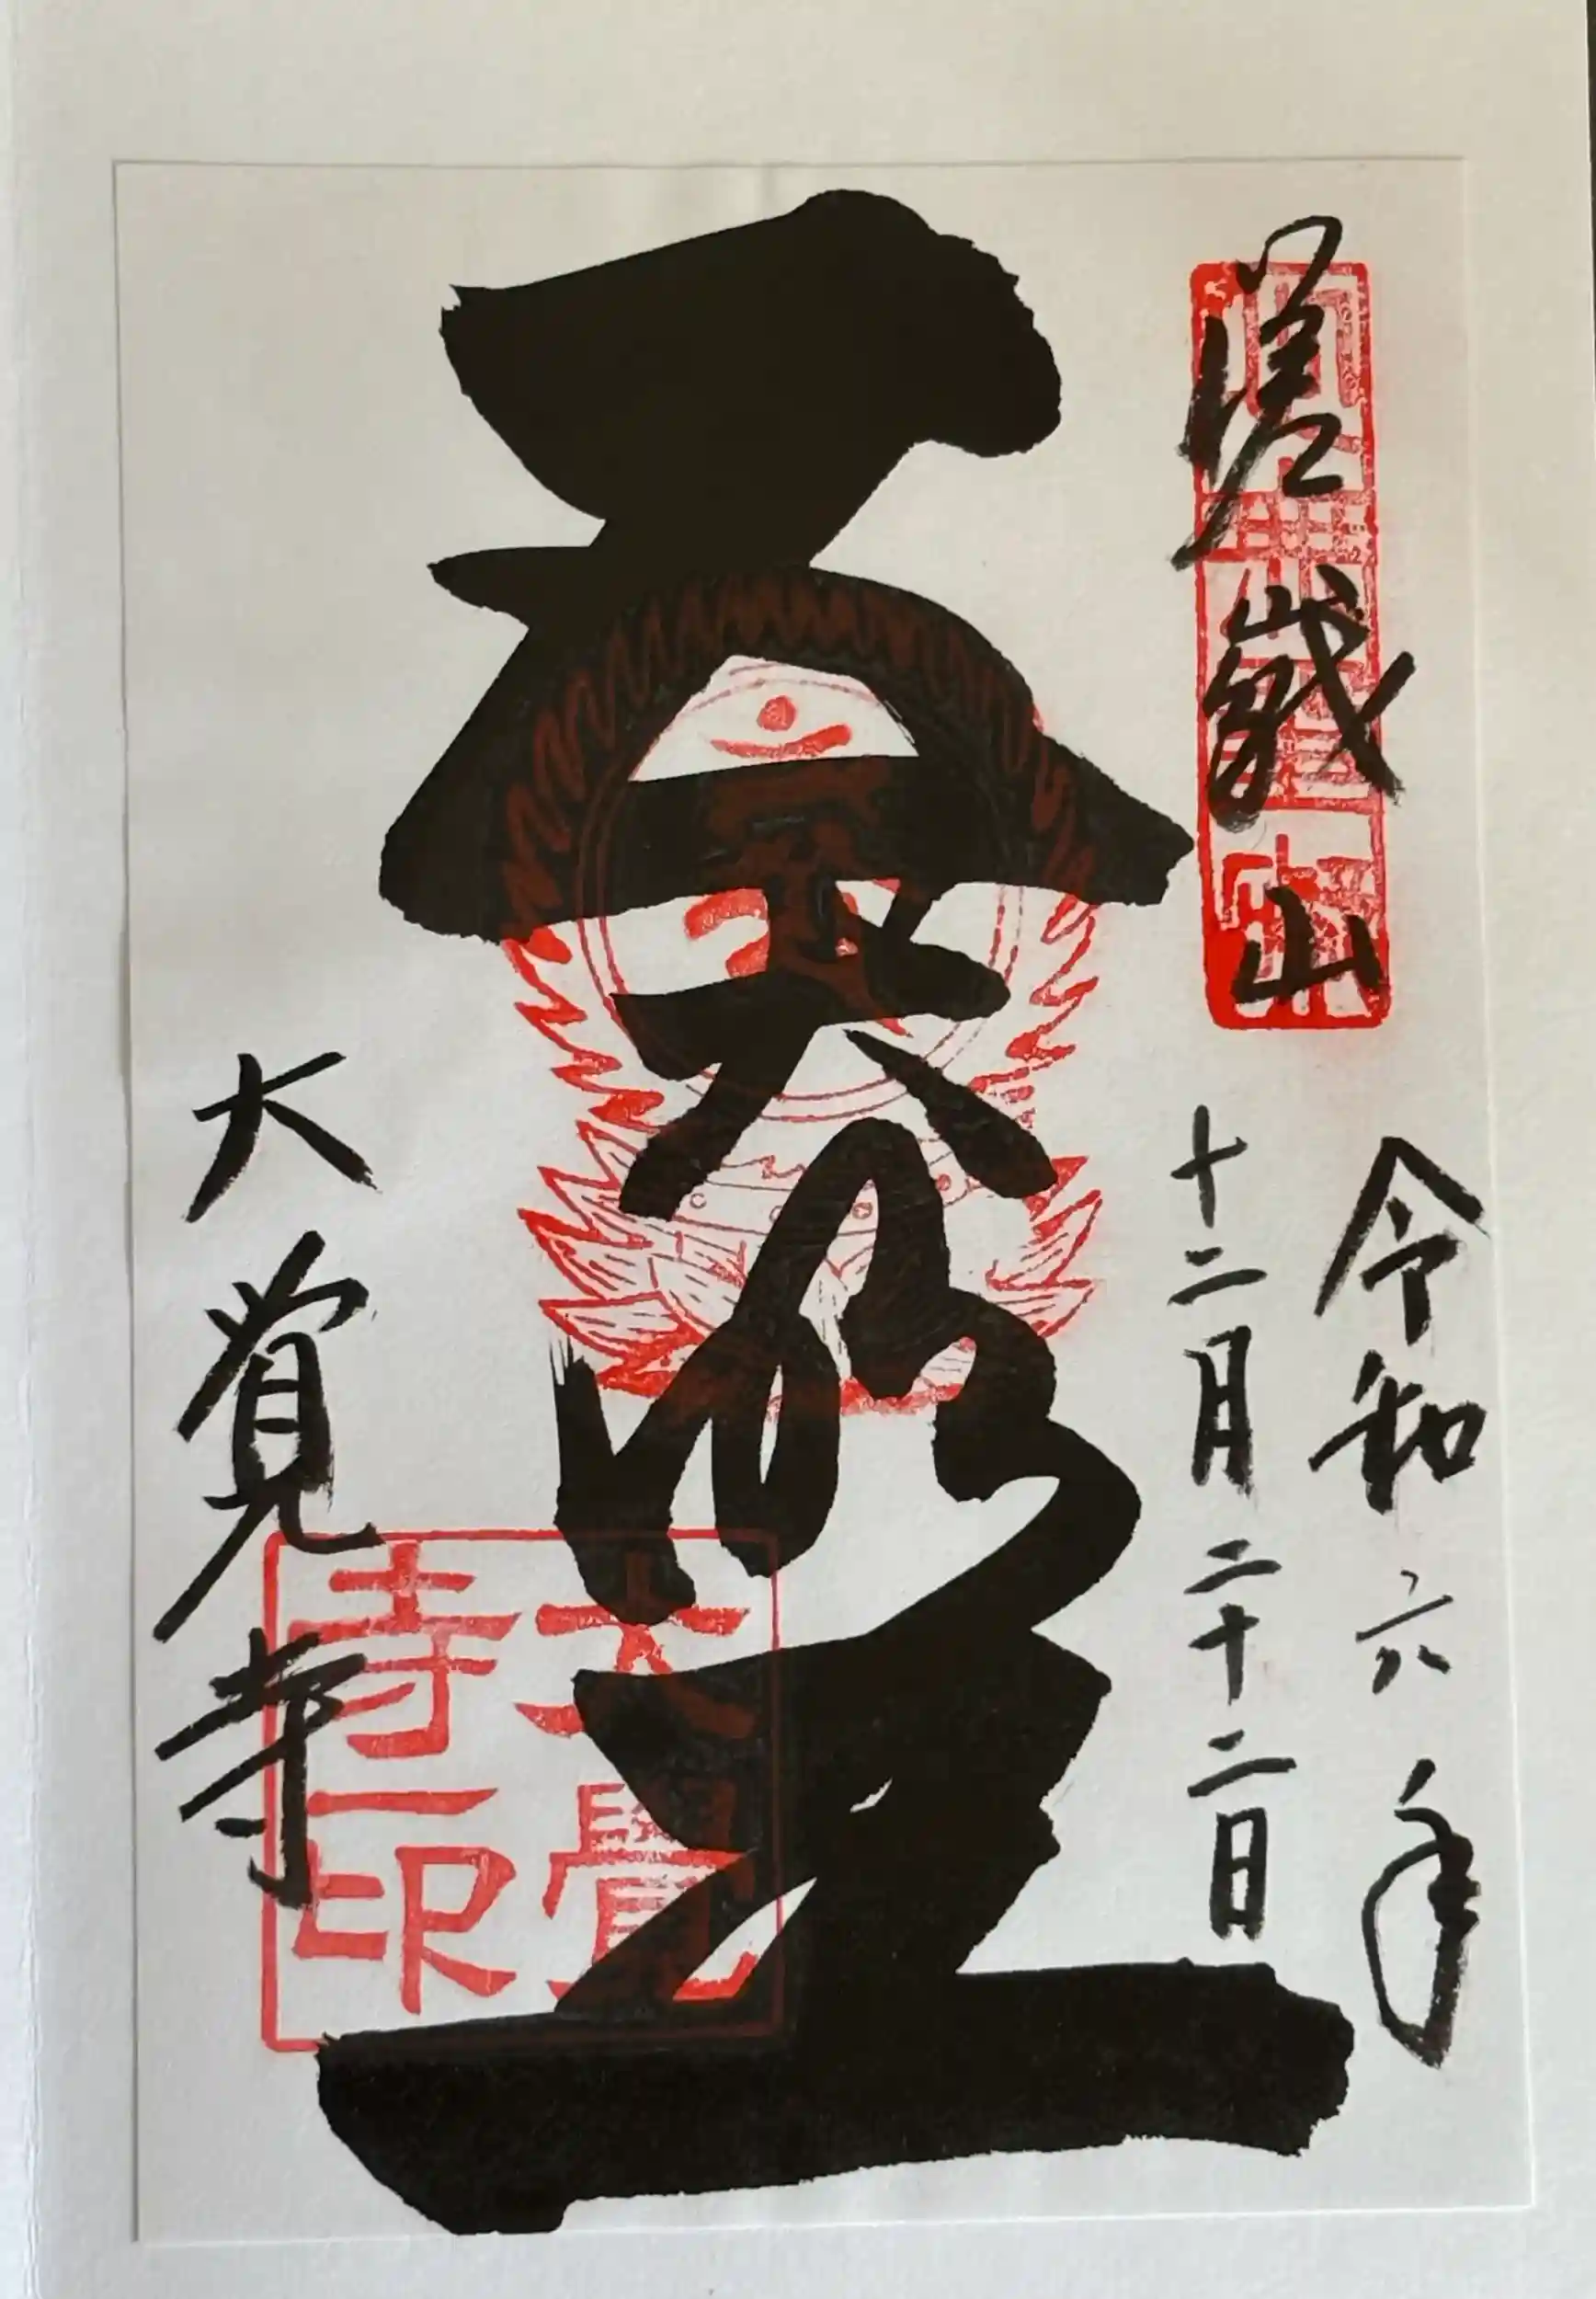 嵯峩山
令和六年
十二月二十二日
五大明王
大覚寺
大覺
寺印